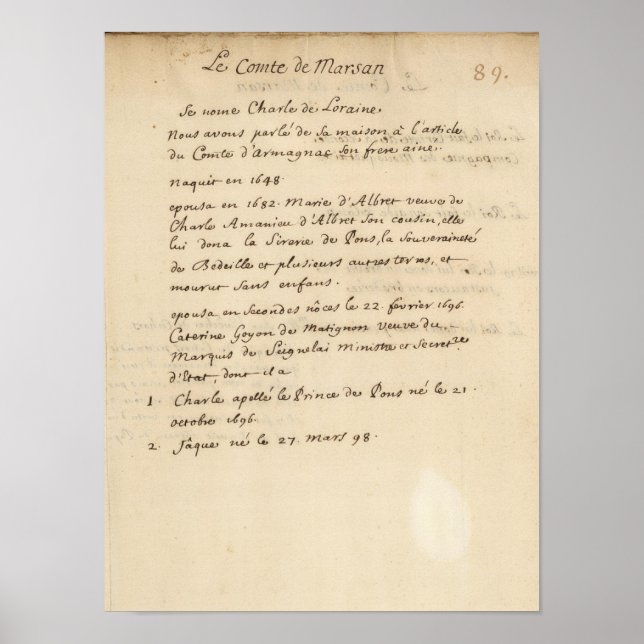 Le Comte de Marsan
89.
Se nome Charle de Loraine.
Nous avons parlé de sa maison à l'article
du Comte d'Armagnac son frere ainé.
Naquit en 1648.
epousa en 1682. Marie d'Albret veuve de
Charle Amanieu d'Albret son cousin, elle
lui dona la Sirerie de Pons, la souveraineté
de Bedeille et plusieurs autres terres, et
mourut sans enfans.
epousa en secondes nôces le 22. février 1696.
Caterine Goyon de Matignon veuve du
Marquis de Seignelai Ministre et Secret.re
d'Etat, dont il a
1 Charle apellé le Prince de Pons né le 21.
octobre 1696.
2. Jâque né le 27. Mars 98.